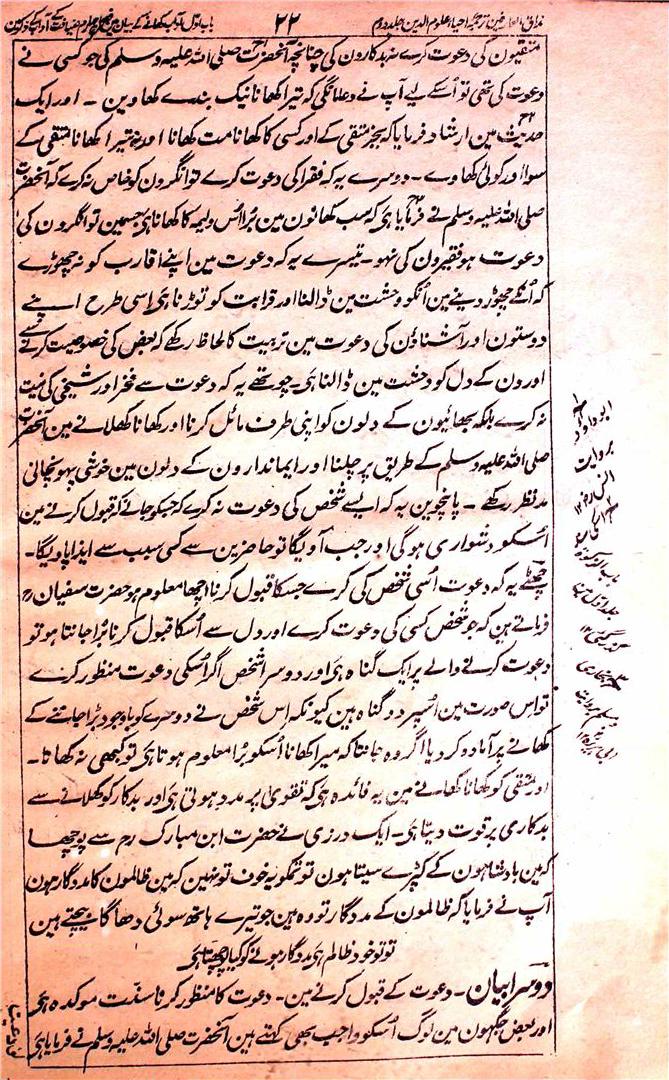 مذاق العارفین ترجمۂ احیاء علوم الدین جلد دوم
۲۲
باب اول آداب کھانے کے بیان مین
متقیون کی دعوت کرے نہ بدکارون کی چنانچہ آنحضرت صلی اللہ علیہ وسلم کی جو کسی نے
دعوت کی تھی تو اُسکے لیے آپ نے دعا مانگی کہ تیرا کھانا نیک بندے کھاوین ۔ اور ایک
حدیث مین ارشاد فرمایا کہ بجز متقی کے اور کسی کا کھانا مت کھانا اور نہ تیرا کھانا متقی کے
سوا اور کوئی کھاوے ۔ دوسرے یہ کہ فقرا کی دعوت کرے تو انگرون کو خاص نہ کرے کہ آنحضرت
صلی اللہ علیہ وسلم نے فرمایا ہی کہ سب کھانون مین بُرا اُس ولیمہ کا کھانا ہی جسمین تو انگرون کی
دعوت ہو فقیرون کی نہو ۔ تیسرے یہ کہ دعوت مین اپنے اقارب کو نہ چھوڑے
کہ اُنکے چھوڑ دینے مین اُنکو وحشت مین ڈالنا اور قرابت کو توڑنا ہی اسی طرح اپنے
دوستون اور آشناؤن کی دعوت مین تربیت کا لحاظ رکھے کہ بعض کی خصوصیت کرنے سے
اورون کے دل کو وحشت مین ڈالنا ہی ۔ چوتھے یہ کہ دعوت سے فخر اور شیخی کی نیت
نہ کرے بلکہ بھائیون کے دلون کو اپنی طرف مائل کرنا اور کھانا کھلانے مین آنحضرت
صلی اللہ علیہ وسلم کے طریق پر چلنا اور ایماندارون کے دلون مین خوشی پہونچانی
مدنظر رکھے ۔ پانچوین یہ کہ ایسے شخص کی دعوت نہ کرے کہ جسکو جانے کہ قبول کرنے مین
اُسکو دشواری ہوگی اور جب آویگا تو حاضرین سے کسی سبب سے ایذا پاویگا ۔
چھٹے یہ کہ دعوت اُسی شخص کی کرے جسکا قبول کرنا اچھا معلوم ہو حضرت سفیان رح
فرماتے ہین کہ جو شخص کسی کی دعوت کرے اور دل سے اُسکا قبول کرنا بُرا جانتا ہو تو
دعوت کرنے والے پر ایک گناہ ہی اور دوسرا شخص اگر اُسکی دعوت منظور کرے
تو اس صورت مین اُسپر دو گناہ ہین کیونکہ اس شخص نے دوسرے کو باوجود بُرا جاننے کے
کھانے پر آمادہ کر دیا اگر وہ جانتا کہ میرا کھانا اُسکو بُرا معلوم ہوتا ہی تو کبھی نہ کھاتا ۔
اور متقی کو کھانا کھلانے مین یہ فائدہ ہی کہ تقوی پر مدد ہوتی ہی اور بدکار کو کھلانے سے
بدکاری پر قوت دیتا ہی ۔ ایک درزی نے حضرت ابن مبارک رح سے پوچھا
کہ مین بادشاہون کے کپڑے سیتا ہون تو تمکو یہ خوف تو نہین کہ مین ظالمون کا مددگار ہون
آپ نے فرمایا کہ ظالمون کے مددگار تو وہ ہین جو تیرے ہاتھ سوئی دھاگا بیچتے ہین
تو تو خود ظالم ہی مددگار ہونے کو کیا پوچھتا ہی
دوسرا بیان ۔ دعوت کے قبول کرنے مین ۔ دعوت کا منظور کرنا سنت موکدہ ہی
اور بعض جگہون مین لوگ اُسکو واجب بھی کہتے ہین آنحضرت صلی اللہ علیہ وسلم نے فرمایا ہی
ابوداؤد
بروایت
انس رض